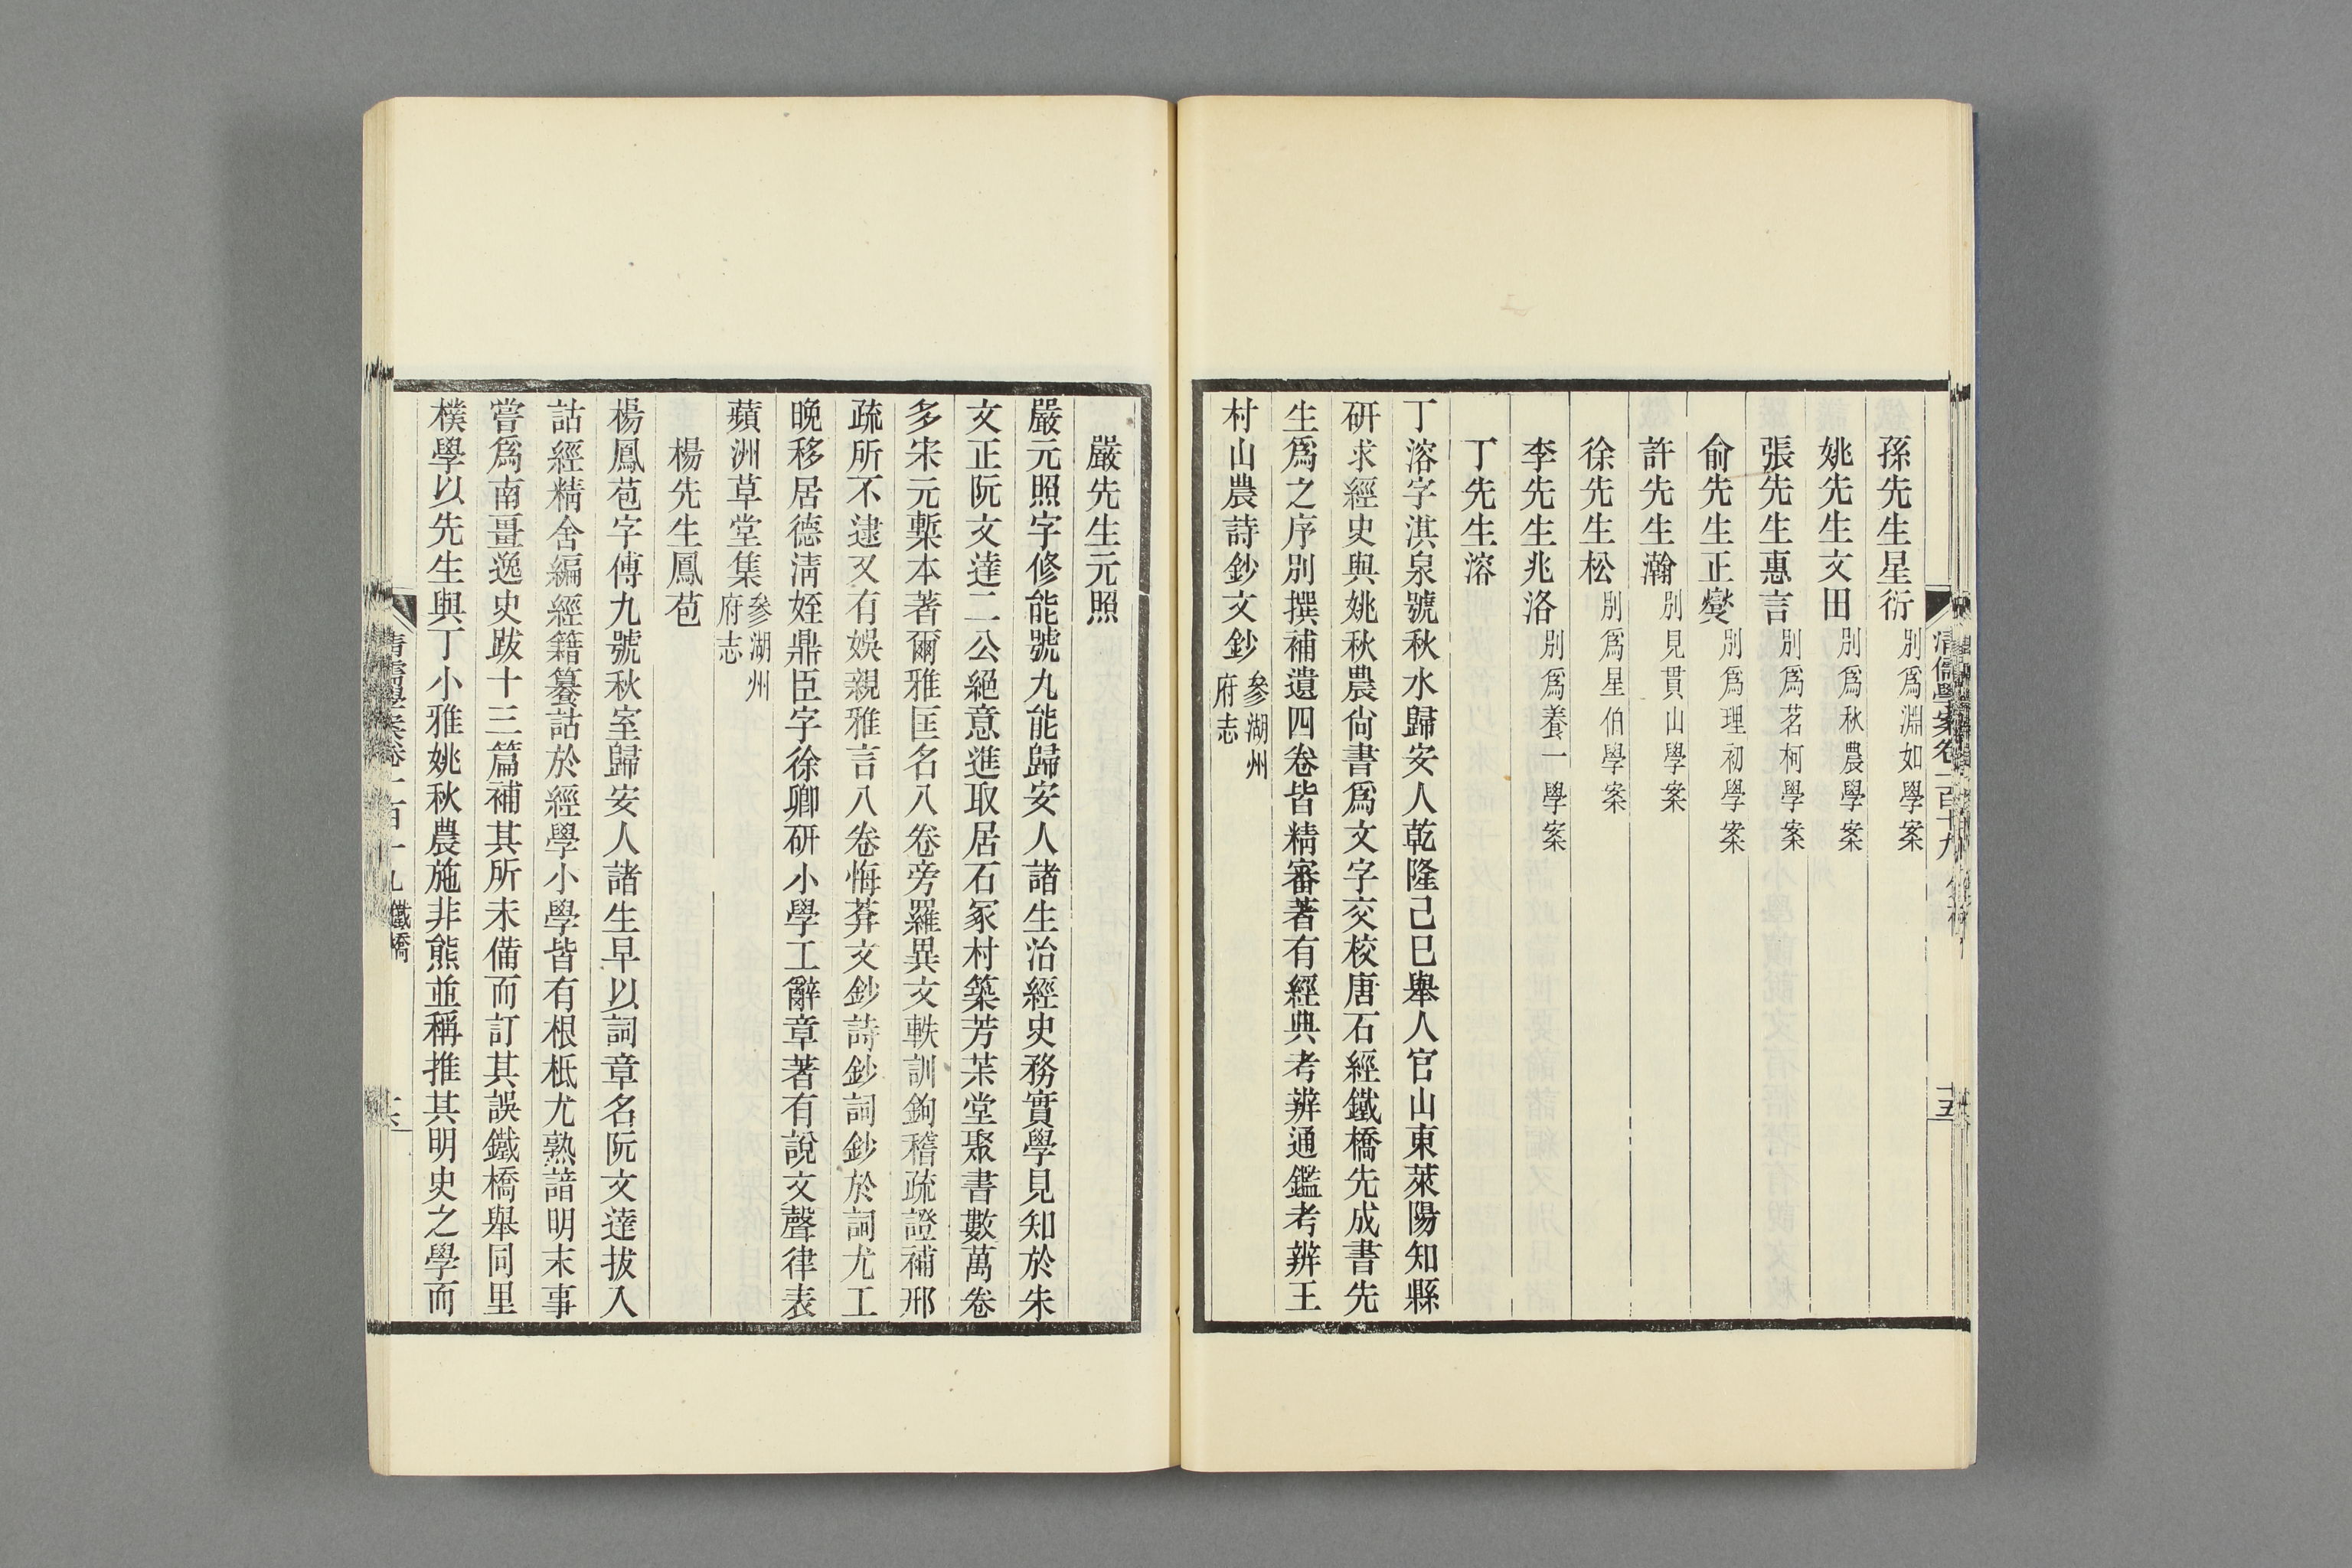 孫先生星衍 別爲淵如學案
姚先生文田 別爲秋農學案
張先生惠言 別爲茗柯學案
俞先生正燮 別爲理初學案
許先生瀚 別見貫山學案
徐先生松 別爲星伯學案
李先生兆洛 別爲養一學案
丁先生溶
丁溶字淇泉號秋水歸安人乾隆己巳舉人官山東萊陽知縣
研求經史與姚秋農尙書爲文字交校唐石經鐵橋先成書先
生爲之序別撰補遺四卷皆精審著有經典考辨通鑑考辨王
村山農詩鈔文鈔 參湖州府志
清儒學案卷一百十九
十五
嚴先生元照
嚴元照字修能號九能歸安人諸生治經史務實學見知於朱
文正阮文達二公絕意進取居石冢村築芳茮堂聚書數萬卷
多宋元槧本著爾雅匡名八卷旁羅異文軼訓鉤稽疏證補邢
疏所不逮又有娛親雅言八卷悔菴文鈔詩鈔詞鈔於詞尤工
晚移居德淸姪鼎臣字徐卿研小學工辭章著有說文聲律表
蘋洲草堂集 參湖州府志
楊先生鳳苞
楊鳳苞字傅九號秋室歸安人諸生早以詞章名阮文達拔入
詁經精舍編經籍籑詁於經學小學皆有根柢尤熟諳明末事
嘗爲南畺逸史跋十三篇補其所未備而訂其誤鐵橋舉同里
樸學以先生與丁小雅姚秋農施非熊並稱推其明史之學而
清儒學案卷一百十九 鐵橋